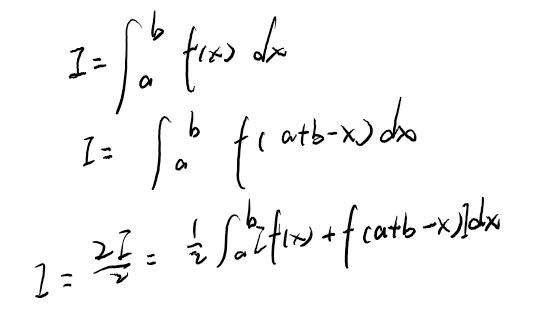 I = ∫_a^b f(x) dx
I = ∫_a^b f(a+b-x) dx
I = 2I/2 = 1/2 ∫_a^b [f(x) + f(a+b-x)] dx